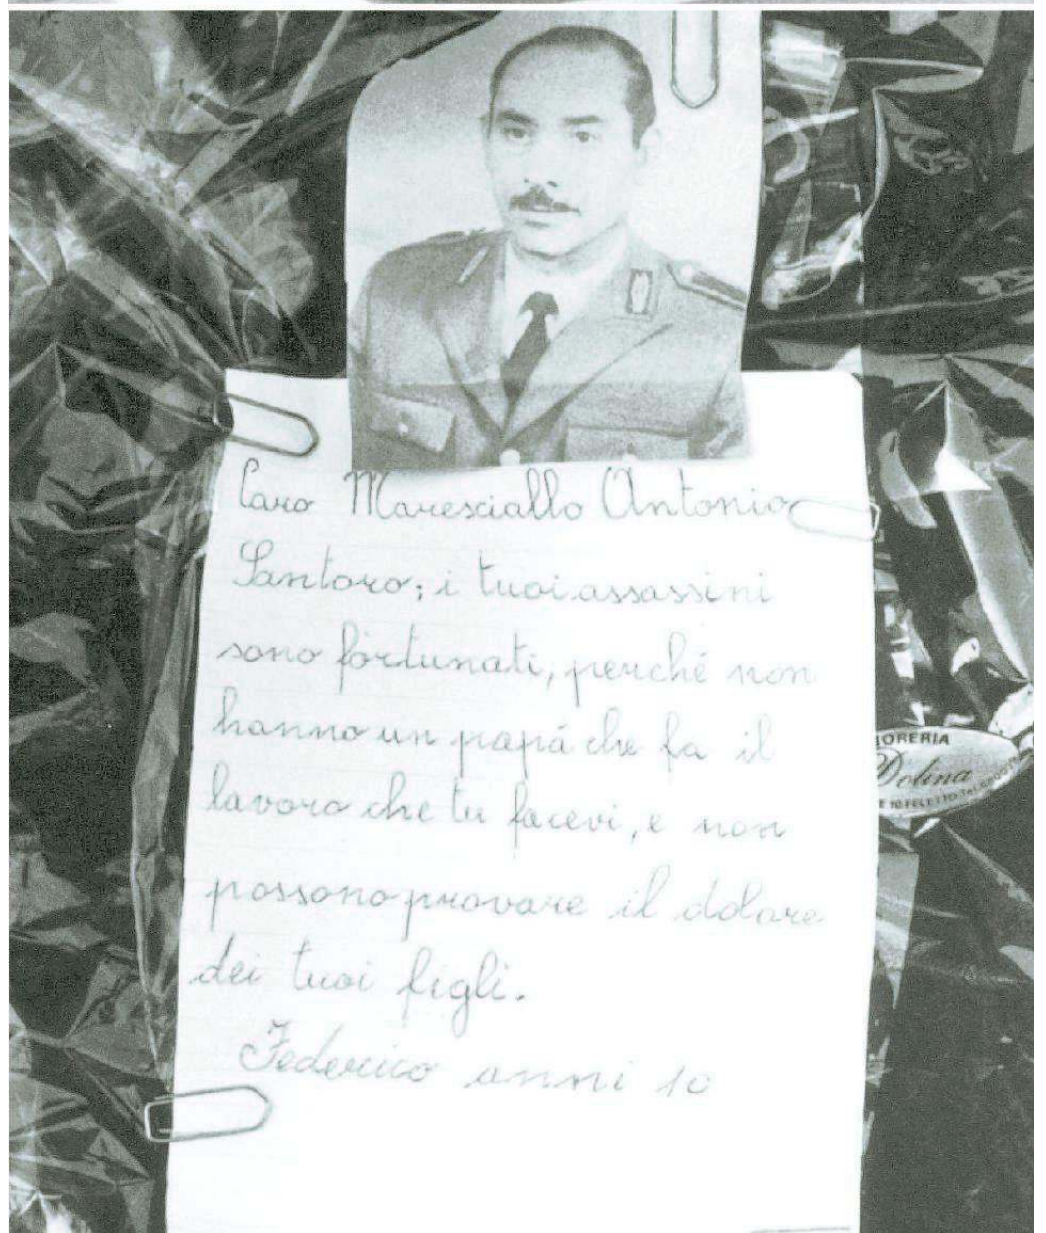 Caro Maresciallo Antonio
Santoro; i tuoi assassini
sono fortunati, perché non
hanno un papá che fa il
lavoro che tu facevi, e non
possono provare il dolore
dei tuoi figli.
Federico anni 10
IORERIA
Dolina